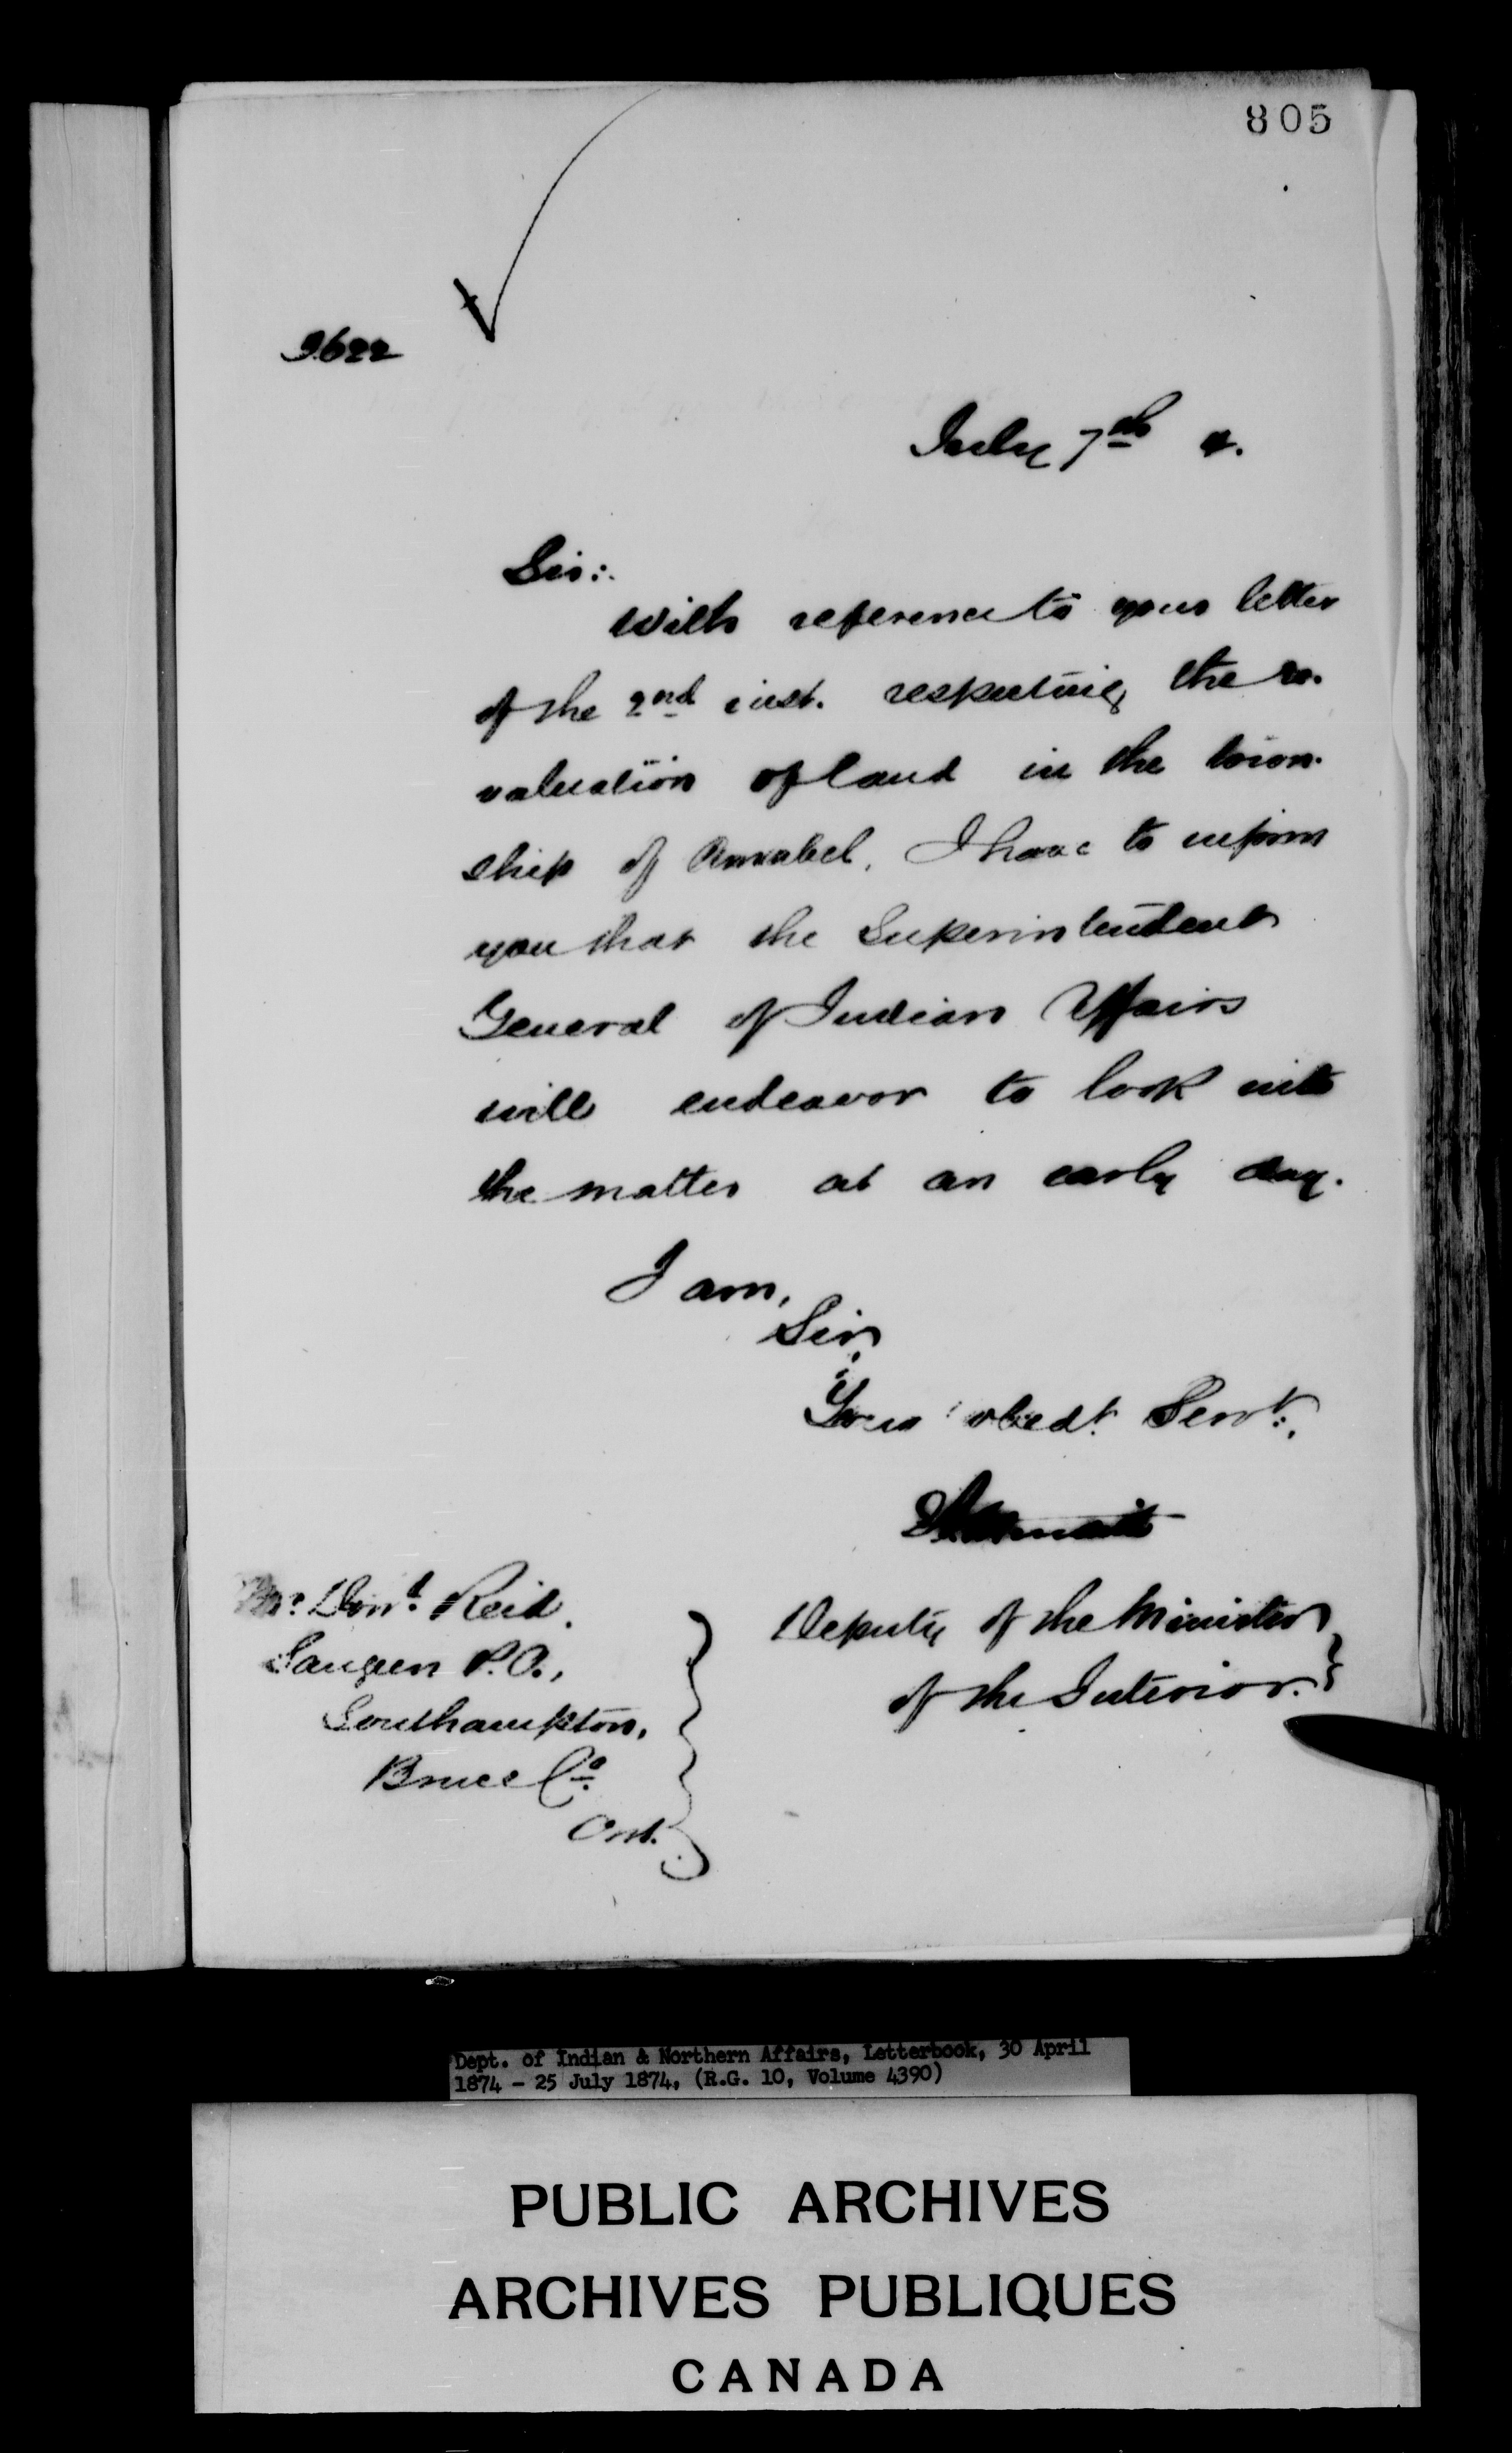 805
2622
July 7th 4.
Sir:
With reference to your letter
of the 2nd inst. respecting the re-
valuation of land in the town-
ship of Amabel, I have to inform
you that the Superintendent
General of Indian Affairs
will endeavor to look into
the matter at an early day.
I am,
Sir,
Your obedt. Servt.,
Mr. Don'd. Reid.
Saugeen P.O.,
Southampton,
Bruce Co.
Ont.
Deputy of the Minister
of the Interior.
Dept. of Indian & Northern Affairs, Letterbook, 30 April
1874 - 25 July 1874, (R.G. 10, Volume 4390)
PUBLIC ARCHIVES
ARCHIVES PUBLIQUES
CANADA